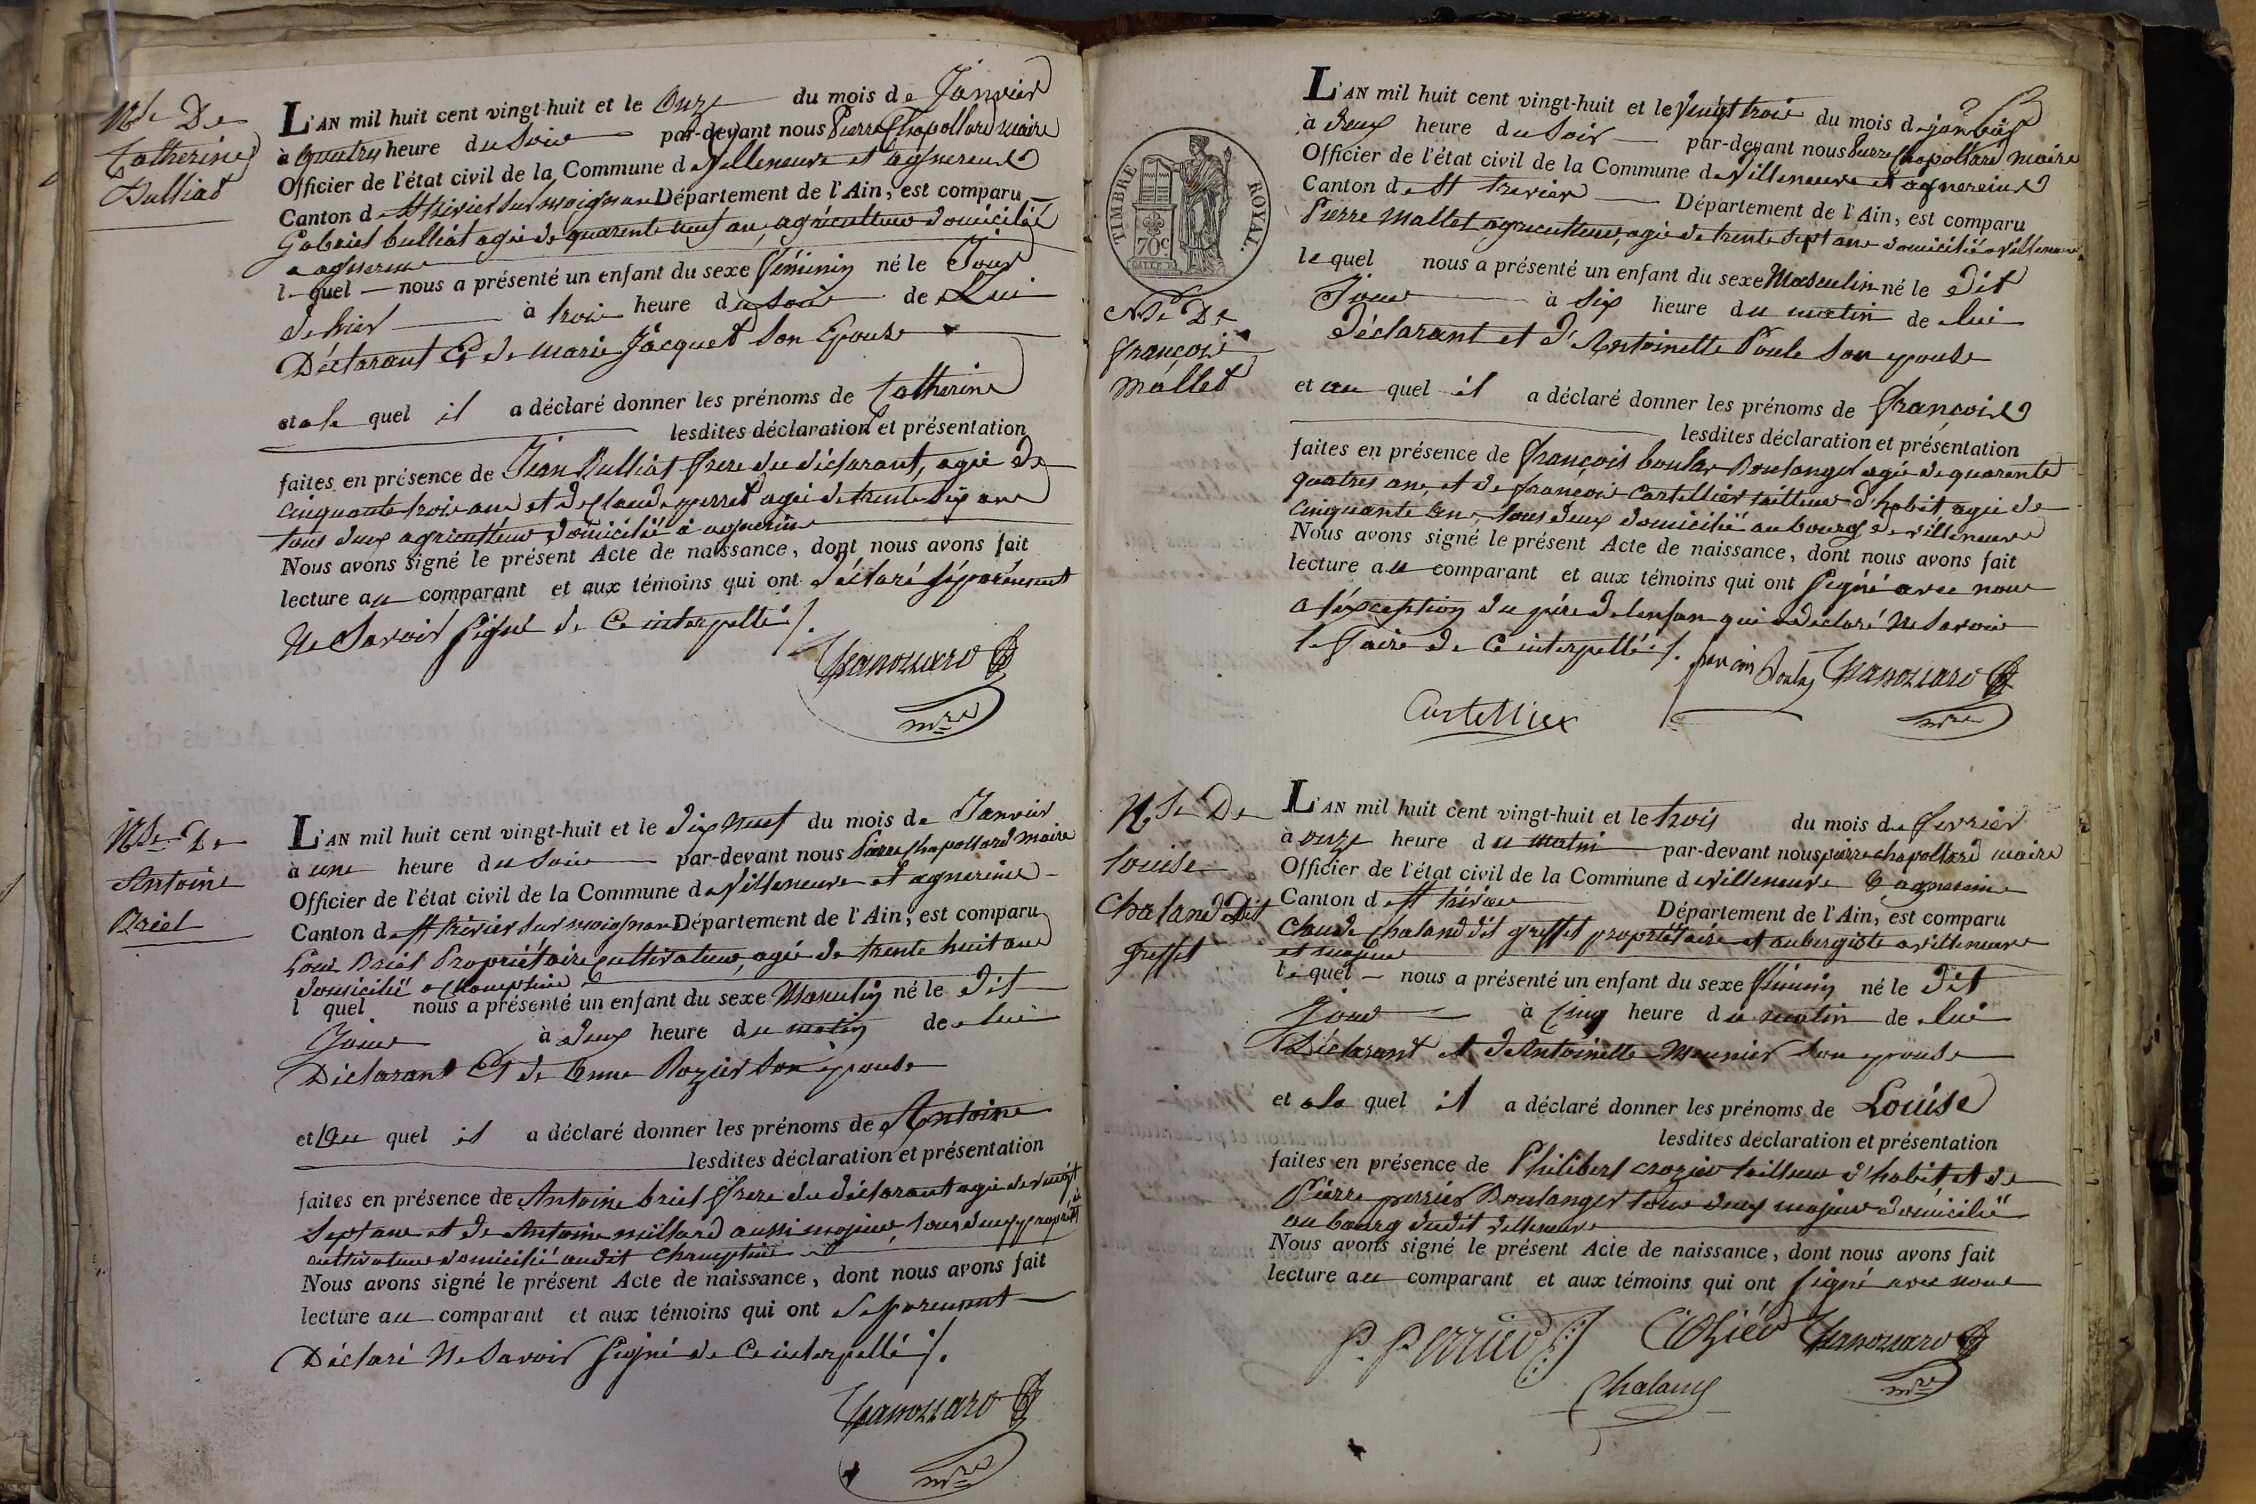 Nce De
Catherine
Bulliat
L'AN mil huit cent vingt-huit et le Onze du mois de Janvier
à quatres heure du Soir par-devant nous Pierre Chapollard maire
Officier de l'état civil de la Commune de Villeneuve et agnereins
Canton de St trivier Sur moignan Département de l'Ain, est comparu
Gabriel bulliat agé de quarente neuf ans, agriculteur domicilié
a agnereins
lequel nous a présenté un enfant du sexe féminin né le Jour
de hier à trois heure du Soir de Lui
Déclarant Et de marie Jacquet Son Epouse
et a la quel il a déclaré donner les prénoms de Catherine
lesdites déclaration et présentation
faites en présence de Jean Bulliat frere du déclarant, agé de
cinquante trois ans et de Claude perret agé de trente Six ans
tous deux agriculteur domicilié à agnereins
Nous avons signé le présent Acte de naissance, dont nous avons fait
lecture au comparant et aux témoins qui ont déclaré séparément
Ne Savoir Signé de Ce interpellé
mre
Nce De
Antoine
Briel
L'AN mil huit cent vingt-huit et le dix Neuf du mois de Janvier
à une heure du Soir par-devant nous Pierre Chapollard maire
Officier de l'état civil de la Commune de Villeneuve et agnereins
Canton de St trivier Sur moignan Département de l'Ain, est comparu
Louis Briel Propriétaire cultivateur, agé de trente huit ans
domicilié a Champtein
l quel nous a présenté un enfant du sexe Masculin né le dit
Jour à deux heure du matin de lui
Déclarant Et de Anne Rozier Son épouse
et au quel il a déclaré donner les prénoms de Antoine
lesdites déclaration et présentation
faites en présence de Antoine briel frere du déclarant agé de vingt
Sept ans et de Antoine millard aussi majeur, tous deux propriét
cultivateur domicilié audit Champtein
Nous avons signé le présent Acte de naissance, dont nous avons fait
lecture au comparant et aux témoins qui ont Séparement
Déclaré Ne Savoir Signé de Ce interpellé
mre
TIMBRE ROYAL.
70c
Nce De
françois
mallet
L'AN mil huit cent vingt-huit et le Vingt trois du mois de janvier
à deux heure du Soir par-devant nous Pierre Chapollard maire
Officier de l'état civil de la Commune de Villeneuve et agnereins
Canton de St trivier Département de l'Ain, est comparu
Pierre Mallet agriculteur, agé de trente Sept ans domicilié a Villeneuve
lequel nous a présenté un enfant du sexe Masculin né le dit
Jour à Six heure du matin de lui
déclarant et d'Antoinette Poule Son epouse
et au quel il a déclaré donner les prénoms de François
lesdites déclaration et présentation
faites en présence de françois boulay Boulanger agé de quarente
quatres ans, et de françois Cartellier tailleur d'habit agé de
Cinquante ans, tous deux domicilié au bourg de villeneuve
Nous avons signé le présent Acte de naissance, dont nous avons fait
lecture au comparant et aux témoins qui ont Signé avec nous
a l'exception du père de lenfan qui a déclaré Ne Savoir
le Faire de Ce interpellé
Cartellier
mre
Nce De
Louise
Chaland Dit
Greffet
L'AN mil huit cent vingt-huit et le trois du mois de fevrier
à onze heure du matin par-devant nous pierre chapollard maire
Officier de l'état civil de la Commune de villeneuve & agnereins
Canton de St trivier Département de l'Ain, est comparu
Claude Chaland dit greffet propriétaire et aubergiste a villeneuve
et majeur
lequel nous a présenté un enfant du sexe féminin né le dit
Jour à Cinq heure du matin de lui
Déclarant et d'Antoinette Meunier Son epouse
et a la quel il a déclaré donner les prénoms de Louise
lesdites déclaration et présentation
faites en présence de Philibert crozier tailleur d'habit et de
Pierre perrier Boulanger tous deux majeur domicilié
au bourg dudit villeneuve
Nous avons signé le présent Acte de naissance, dont nous avons fait
lecture au comparant et aux témoins qui ont Signé avec nous
Chaland
mre